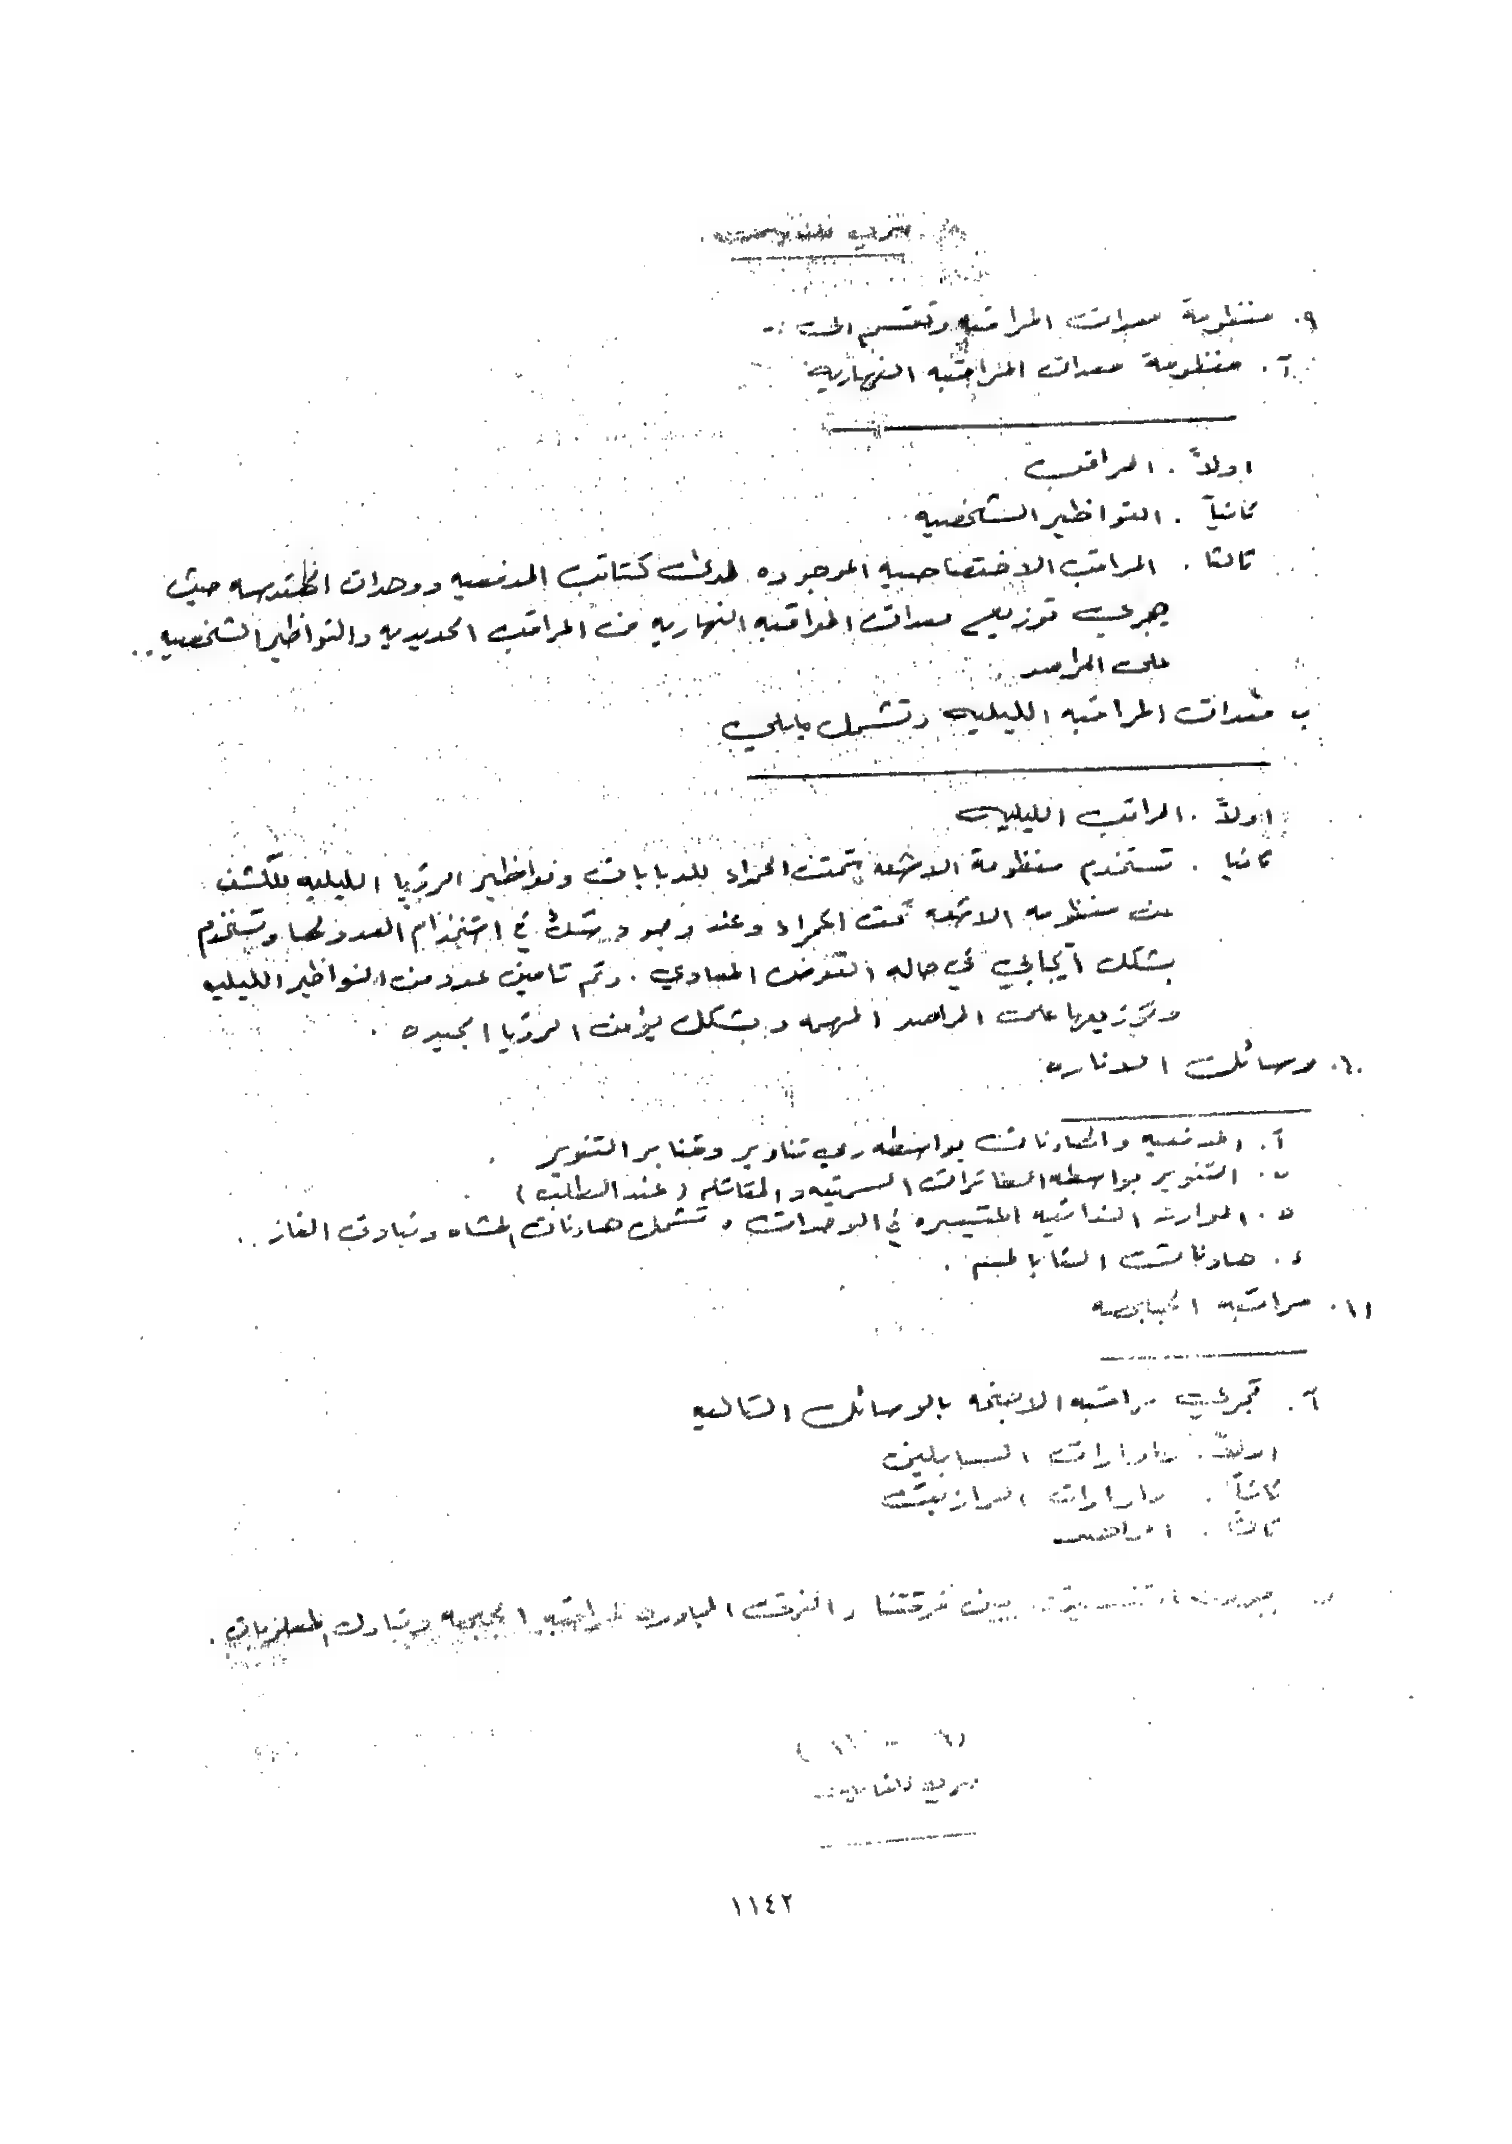 سري للغاية
٩. منظومة معدات المراقبه وتقسم الى :-
آ. منظومة معدات المراقبه النهاريه
اولاً . المراقب
ثانياً . النواظير الشخصيه
ثالثا . المراقب الاختصاصيه الموجوده لدى كتائب المدفعيه ووحدات الهندسه حيث
يجري توزيع معدات المراقبه النهاريه من المراقب الحديديه والنواظير الشخصيه ..
على المراصد
ب معدات المراقبه الليليه وتشمل مايلي
اولاً . المراقب الليليه
ثانيا . تستخدم منظومة الاشعه تحت الحمراء للدبابات ونواظير الرؤيا الليليه للكشف
عن منظومه الاشعه تحت الحمراء وعند وجود شك في استخدام العدو لها وتستخدم
بشكل آيجابي في حاله التعرض المعادي . وتم تامين عدد من النواظير الليليه
وتوزيعها على المراصد المهمه وبشكل يؤمن الرؤيا الجيده .
١٠. وسائل الاناره
آ. المدفعيه والهاونات بواسطه رمي تناوير وقنابر التنوير .
ب. التنوير بواسطه الطائرات السمتيه والمقاتله ( عند الطلب ) .
ج. الموارد الذاتيه المتيسره في الوحدات وتشمل هاونات المشاه وبنادق الغاز ..
د. هاونات الدبابات .
١١. مراقبه الجبهه
آ. تجري مراقبه الاجنحه بالوسائل التاليه
اولاً. رادارات السابلين
ثانياً . رادارات الرازيت
ثالثاً . المراصد
بين فرقتنا والفرق المجاوره لمراقبه الجبهه وتبادل المعلومات .
(٦ - ١١)
سري للغاية
١١٤٢